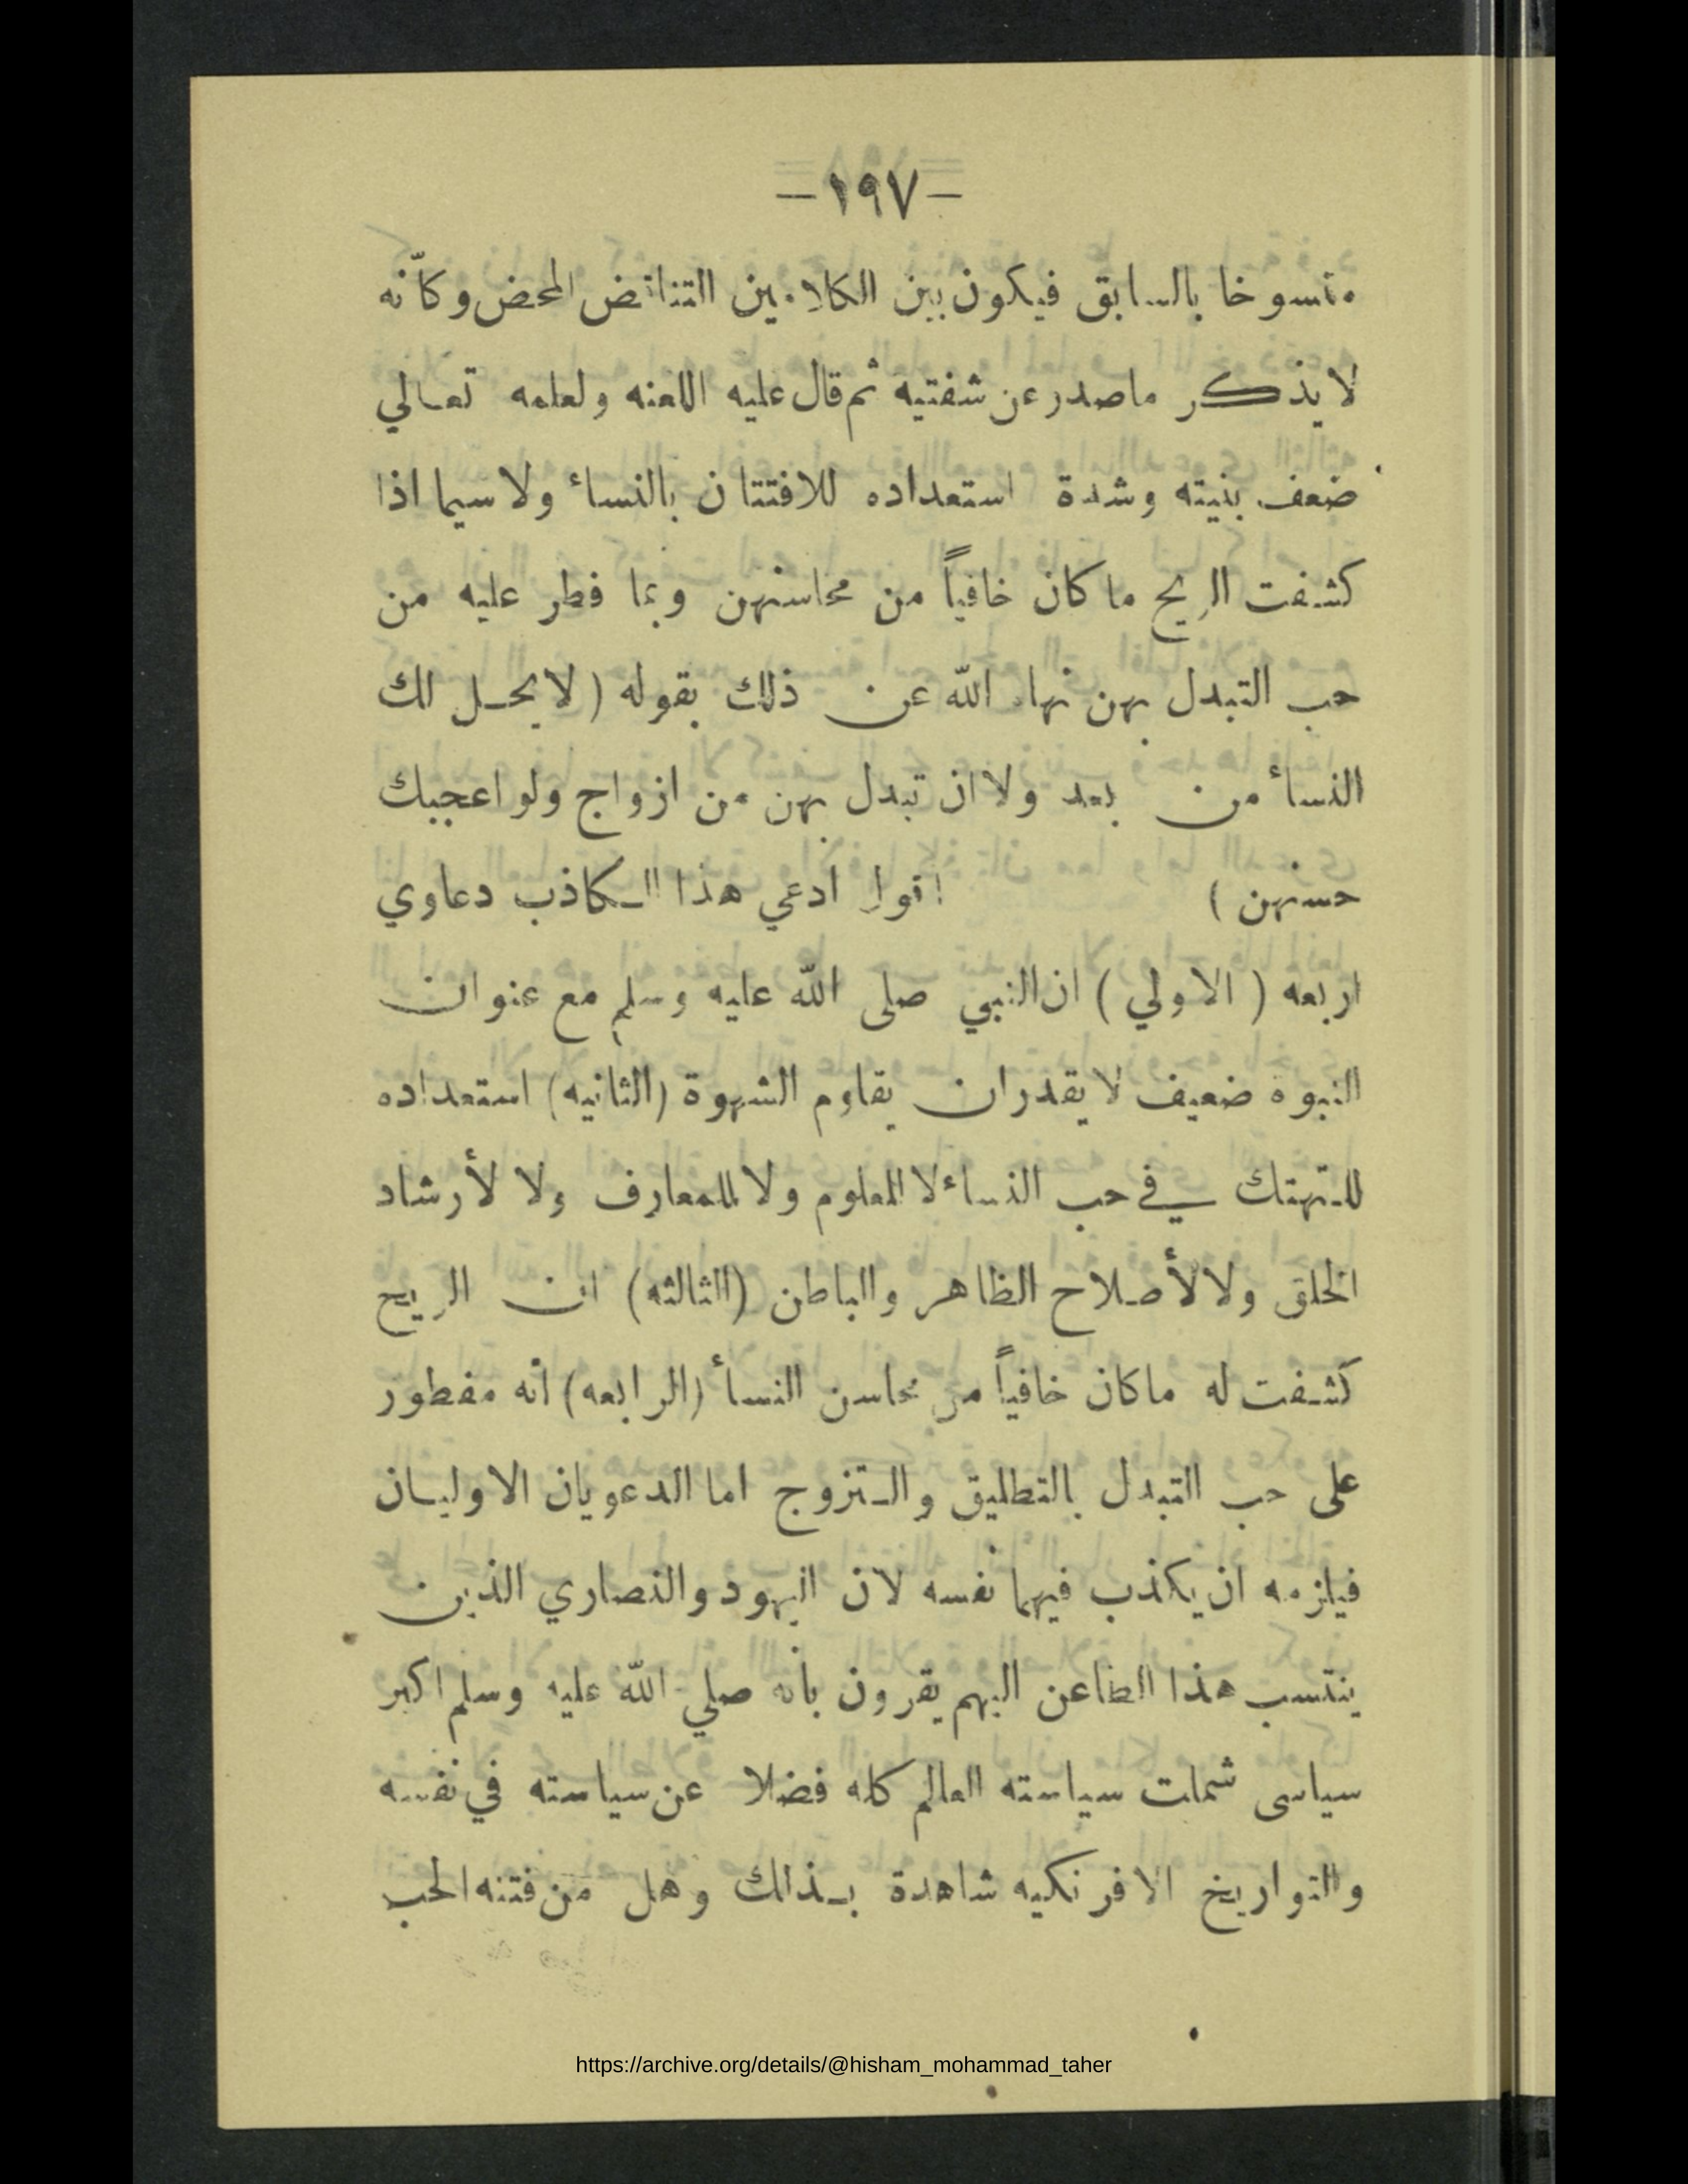 -١٩٧-
منسوخا بالسابق فيكون بين الكلامين التناقض المحض وكأنّه
لا يذكر ماصدر عن شفتيه ثم قال عليه اللعنه ولعلمه تعالي
ضعف بنيته وشدة استعداده للافتتان بالنسأ ولا سيما اذا
كشفت الريح ما كان خافياً من محاسنهن وبما فطر عليه من
حب التبدل بهن نهاه اللّه عن ذلك بقوله ( لا يحل لك
النسأ من بعد ولا ان تبدل بهن من ازواج ولو اعجبك
حسنهن ) اقول ادعي هذا الكاذب دعاوي
اربعه ( الاولي ) ان النبي صلى اللّه عليه وسلم مع عنوان
النبوه ضعيف لا يقدر ان يقاوم الشهوة (الثانيه) استعداده
للتهتك في حب النساء لا للعلوم ولا للمعارف ولا لأرشاد
الخلق ولا لأصلاح الظاهر والباطن (الثالثه) ان الريح
كشفت له ماكان خافياً من محاسن النسأ (الرابعه) انه مفطور
على حب التبدل بالتطليق والتزوج اما الدعويان الاوليان
فيلزمه ان يكذب فيهما نفسه لان اليهود والنصاري الذين
ينتسب هذا الطاعن اليهم يقرون بأنه صلي اللّه عليه وسلم اكبر
سياسى شملت سياسته العالم كله فضلا عن سياسته في نفسه
والتواريخ الافرنكيه شاهدة بذلك وهل من فتنه الحب
https://archive.org/details/@hisham_mohammad_taher